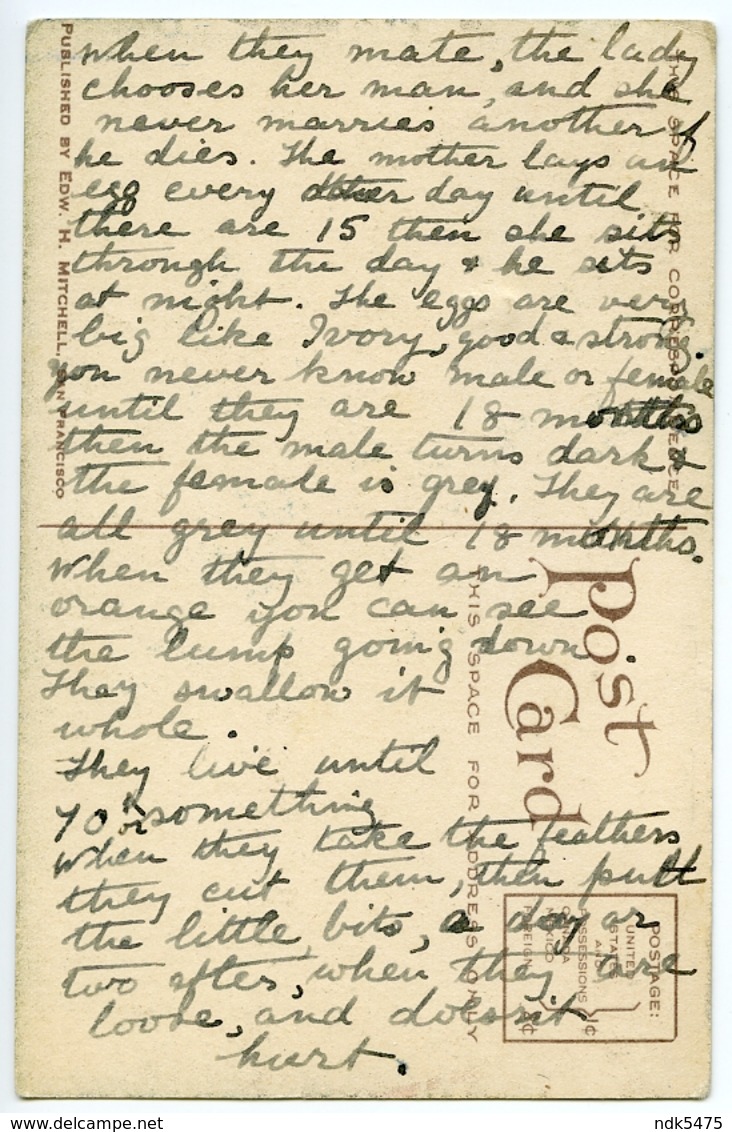 when they mate, the lady
chooses her man, and she
never marries another if
he dies. The mother lays an
egg every other day until
there are 15 then she sits
through the day & he sits
at night. The eggs are very
big like Ivory, good & strong.
you never know male or female
until they are 18 months
then the male turns dark &
the female is grey. They are
all grey until 18 months.
When they get an
orange you can see
the lump going down
They swallow it
whole.
They live until
70 or something
When they take the feathers
they cut them, then pull
the little bits, a day or
two after, when they are
loose, and doesn't
hurt.
PUBLISHED BY EDW. H. MITCHELL, SAN FRANCISCO
THIS SPACE FOR CORRESPONDENCE
Post Card
THIS SPACE FOR ADDRESS ONLY
POSTAGE:
UNITED
STATES
AND
POSSESSIONS
CANADA
MEXICO
1¢
FOREIGN 2¢
ndk5475